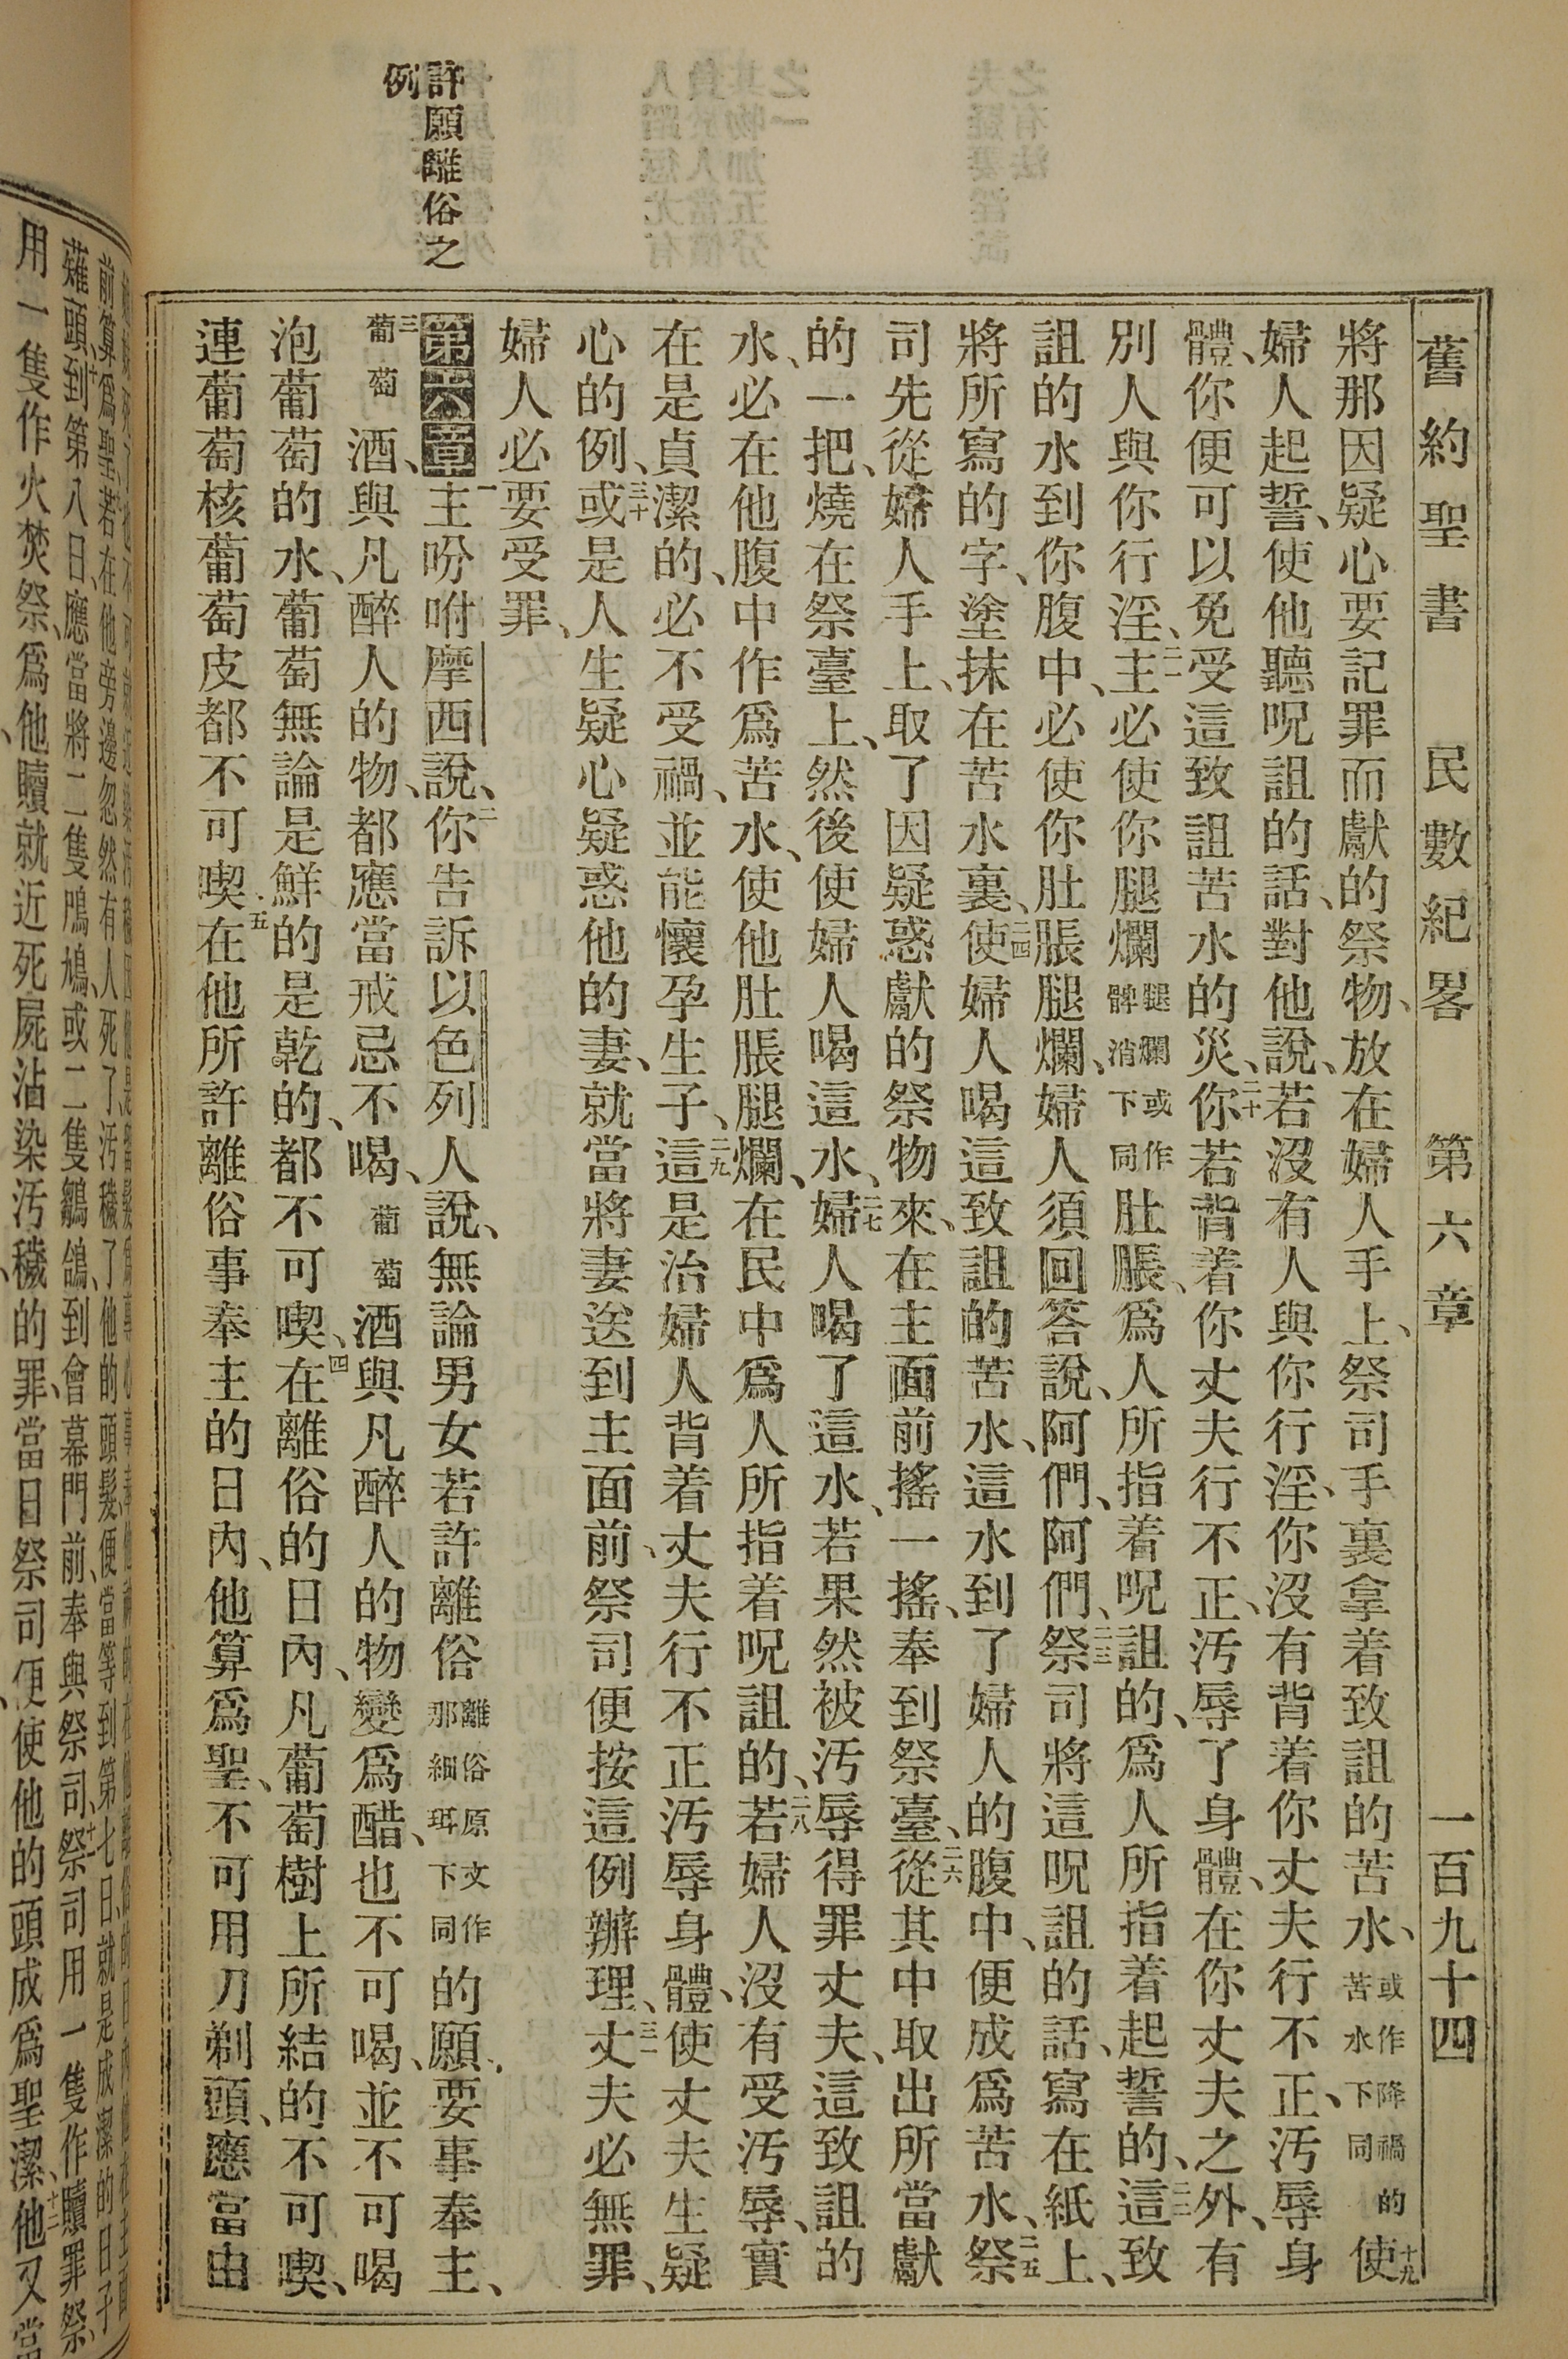 舊約聖書 民數紀畧 第六章 一百九十四
將那因疑心要記罪而獻的祭物、放在婦人手上、祭司手裏拿着致詛的苦水、或作降禍的苦水下同十九使
婦人起誓、使他聽呪詛的話、對他說、若沒有人與你行淫、你沒有背着你丈夫行不正、汚辱身
體、你便可以免受這致詛苦水的災、二十你若背着你丈夫行不正、汚辱了身體、在你丈夫之外、有
別人與你行淫、二一主必使你腿爛腿爛或作髀消下同肚脹、爲人所指着呪詛的、爲人所指着起誓的、二二這致
詛的水到你腹中、必使你肚脹腿爛、婦人須回答說、阿們、阿們、二三祭司將這呪詛的話、寫在紙上、
將所寫的字、塗抹在苦水裏、二四使婦人喝這致詛的苦水、這水到了婦人的腹中、便成爲苦水、二五祭
司先從婦人手上、取了因疑惑獻的祭物來、在主面前搖一搖、奉到祭臺、二六從其中取出所當獻
的一把、燒在祭臺上、然後使婦人喝這水、二七婦人喝了這水、若果然被汚辱得罪丈夫、這致詛的
水、必在他腹中作爲苦水、使他肚脹腿爛、在民中爲人所指着呪詛的、二八若婦人沒有受汚辱、實
在是貞潔的、必不受禍、並能懷孕生子、二九這是治婦人背着丈夫行不正汚辱身體、使丈夫生疑
心的例、三十或是人生疑心疑惑他的妻、就當將妻送到主面前、祭司便按這例辦理、三一丈夫必無罪、
婦人必要受罪、
許願離俗之
例
第六章一主吩咐摩西說、二你告訴以色列人說、無論男女若許離俗離俗原文作那細珥下同的願、要事奉主、
三葡萄酒、與凡醉人的物、都應當戒忌不喝、葡萄酒與凡醉人的物變爲醋、也不可喝、並不可喝
泡葡萄的水、葡萄無論是鮮的是乾的、都不可喫、四在離俗的日內、凡葡萄樹上所結的不可喫、
連葡萄核葡萄皮都不可喫、五在他所許離俗事奉主的日內、他算爲聖、不可用刀剃頭、應當由
前算爲聖、若在他旁邊忽然有人死了、汚穢了他的頭髮、便當等到第七日、就是成潔的日子
薙頭、十到第八日、應當將二隻鳲鳩、或二隻鶵鴿、到會幕門前、奉與祭司、十一祭司用一隻作贖罪祭、
用一隻作火焚祭、爲他贖就近死屍沾染汚穢的罪、當日祭司便使他的頭成爲聖潔、十二他又當